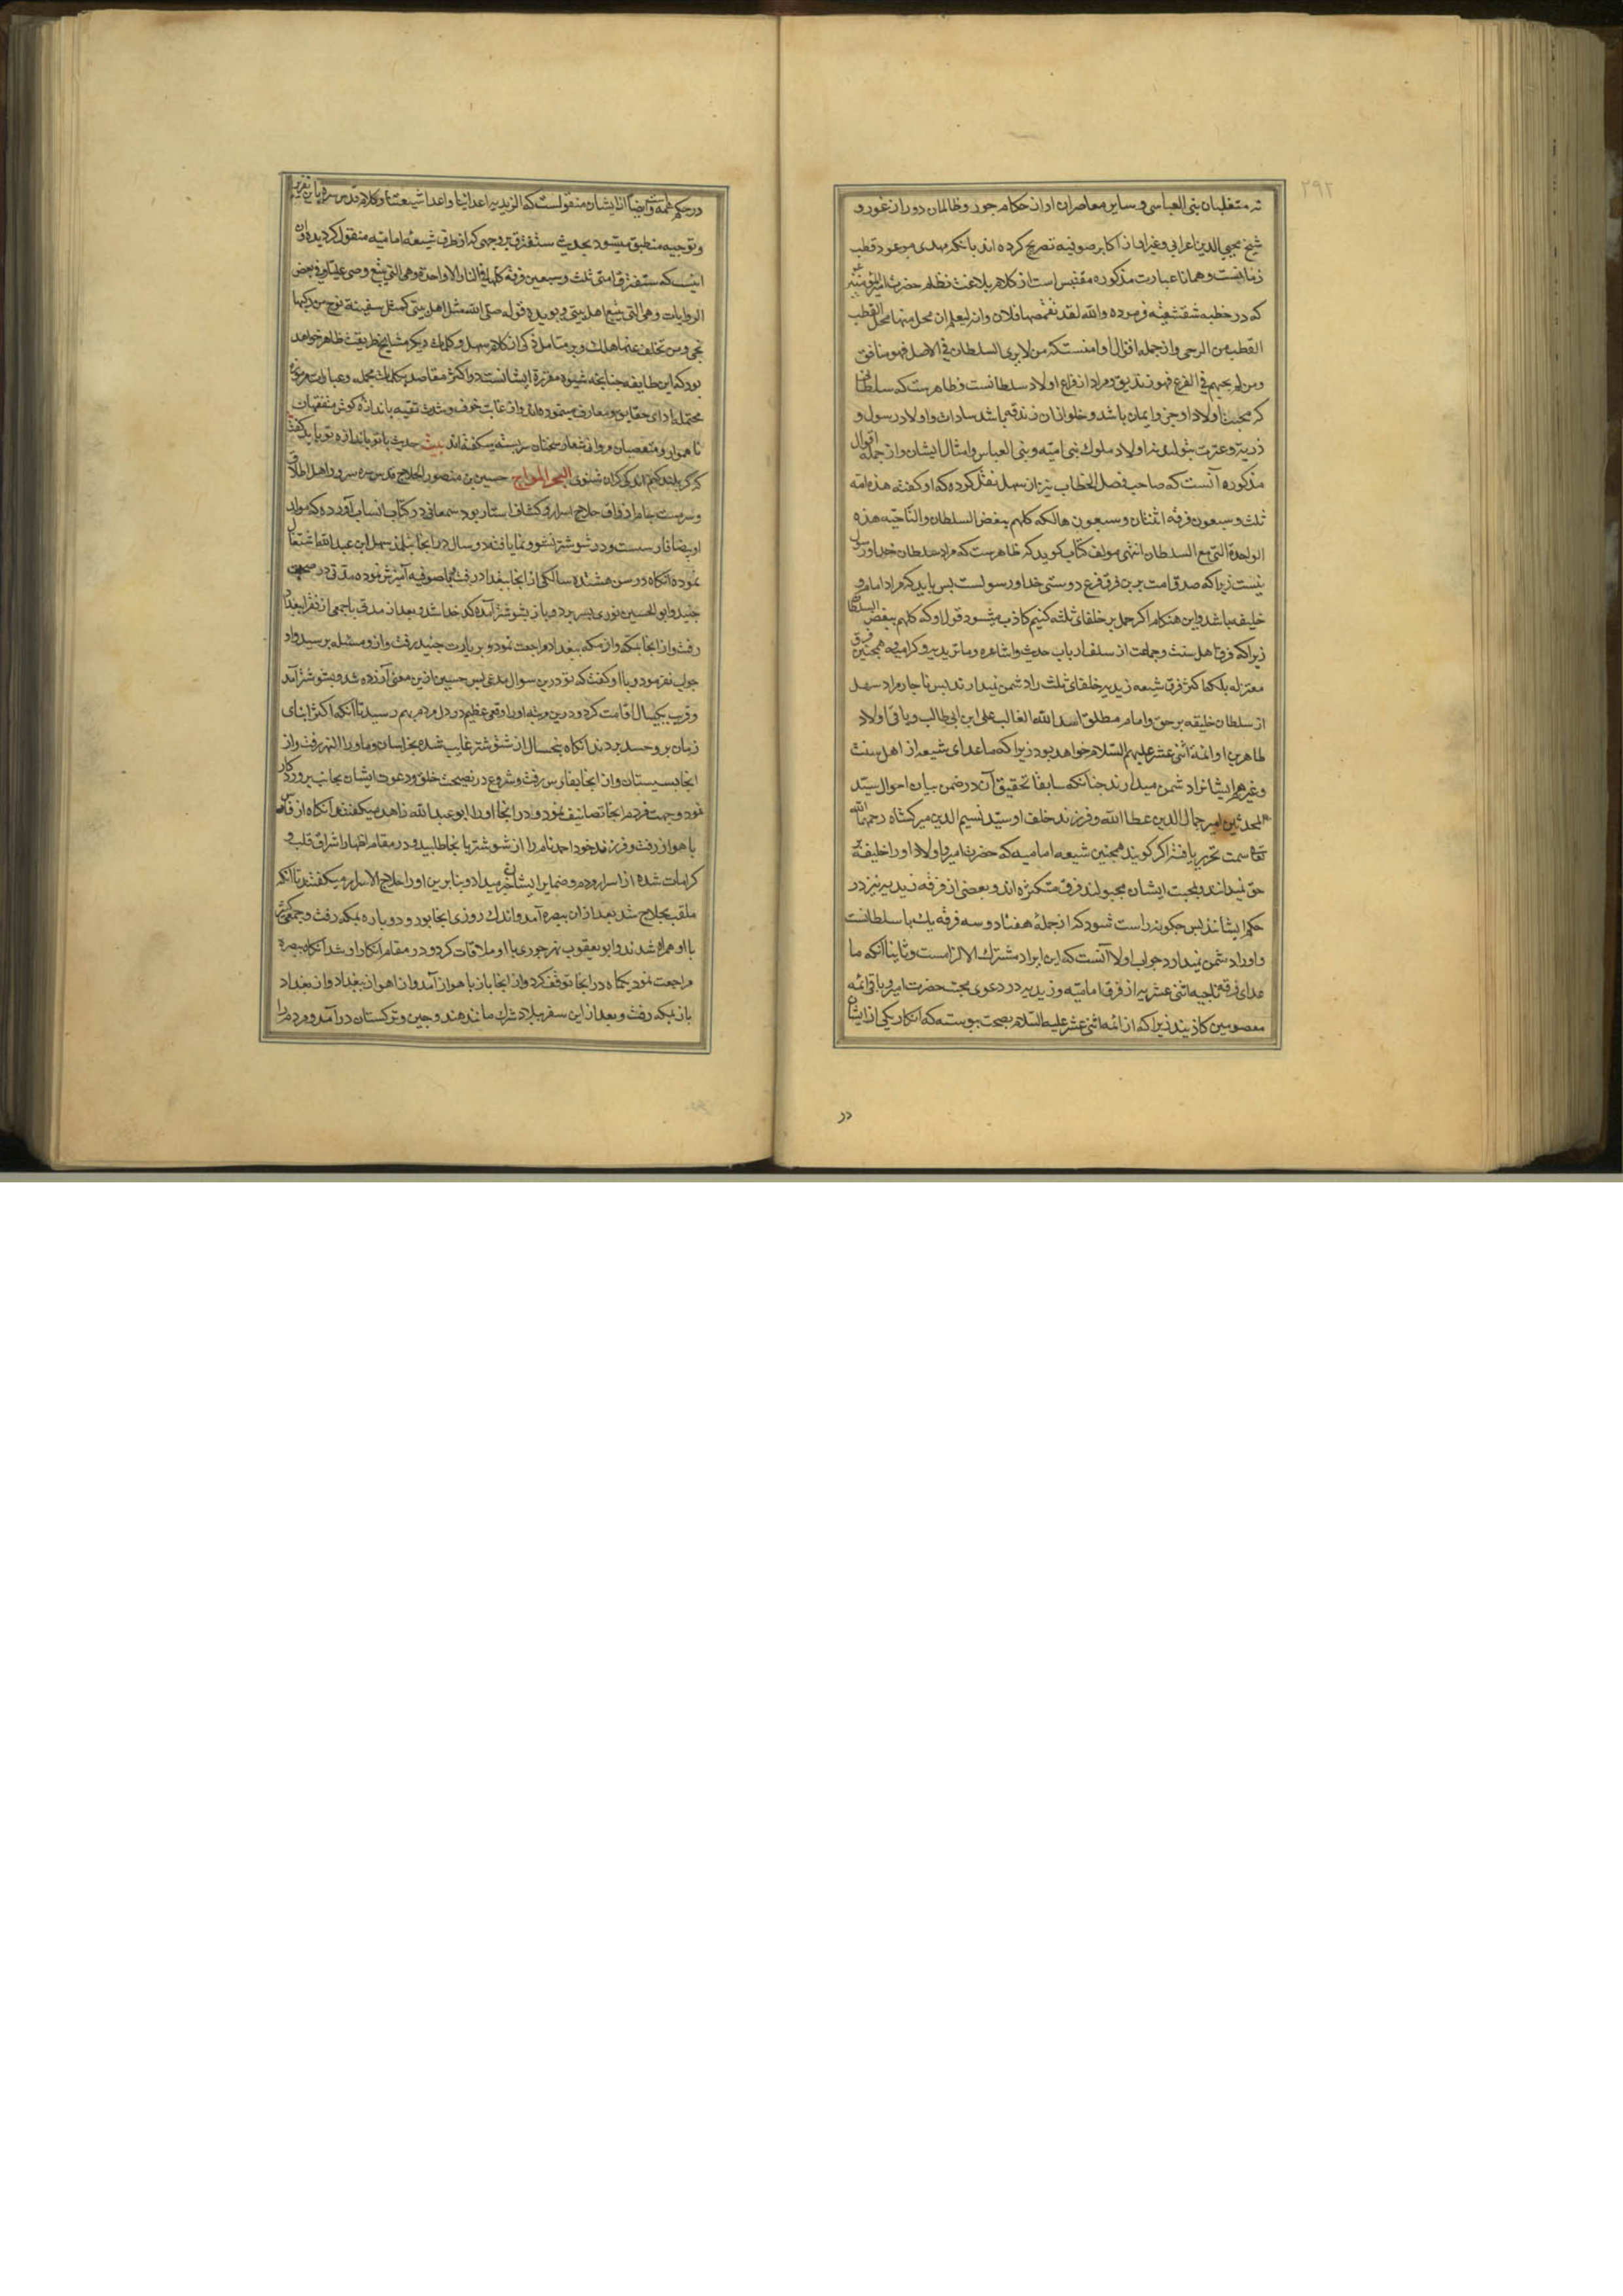 ٢٩٢
نه متغلبان بنی العباسی و سایر معاصران او از حکام جور و ظالمان دوران غور و
شیخ محیی الدین اعرابی و غیر او از اکابر صوفیه تصریح کرده اند بانکه مهدی موعود قطب
زمانست و همانا عبارت مذکوره مقتبس است از کلام بلاغت نظام حضرت امیرالمؤمنین
که در خطبه شقشقیه فرموده والله لقد تقمصها فلان وانه لیعلم ان محلی منها محل القطب
القطب من الرحی و از جمله اقوال او امنست که من لا یری السلطان فی الاصل فهو منافق
ومن لم یحبهم فی الفرع فهو زندیق و مراد از فرع اولاد سلطانست و ظاهرست که سلطانی
که محبت اولاد او جزو ایمان باشد و خلو از ان زندقه باشد سادات و اولاد رسول و
ذریه و عترت بتولند نه اولاد ملوک بنی امیه و بنی العباس و امثال ایشان و از جمله اقوال
مذکوره آنست که صاحب فصل الخطاب نیز از سهل نقل کرده که او کفته هذه امة
ثلث وسبعون فرقه اثنتان وسبعون هالکه کلهم یبغض السلطان والناجیه هذه
الواحدة التی مع السلطان انتهی مولف کتاب کوید که ظاهرست که مراد سلطان خدا و رسول
نیست زیرا که صدق امت برین فرق فرع دوستی خدا و رسولست پس باید که مراد امام و
خلیفه باشد و این هنکام اکر حمل بر خلفای ثلثه کنیم کاذب میشود قول او که کلهم یبغض السلطان
زیرا که فرق اهل سنت و جماعت از سلف ارباب حدیث و اشاعره و ماتریدیه و کرامیه و همچنین فرق
معتزله بلکه اکثر فرق شیعه زیدیه خلفای ثلث را دشمن نمیدارند پس ناچار مراد سهل
از سلطان خلیفه بر حق و امام مطلق اسد الله الغالب علی ابن ابی طالب و باقی اولاد
طاهرین او ائمه اثنی عشر علیهم السلام خواهد بود زیرا که ماعدای شیعه از اهل سنت
و غیرهم ایشانرا دشمن میدارند چنانکه سابقا تحقیق آن در ضمن بیان احوال سید
المحدثین امیر جمال الدین عطاالله و فرزند خلف او سید نسیم الدین میرکشاه رحمهما الله
تعالی سمت تحریر یافت اکر کویند همچنین شیعه امامیه که حضرت امیر و اولاد او را خلیفه بر
حق میدانند و بمحبت ایشان مجبولند فرق متکثره اند و بعضی از فرقه زیدیه نیز در
حکم ایشانند پس چکونه راست شود که از جمله هفتاد و سه فرقه یک با سلطانست
و او را دشمن نمیدارد جواب اولا آنست که این ایراد مشترک الالزامست و ثانیا آنکه ما
عدای فرقه ناجیه اثنی عشریه از فرق امامیه و زیدیه در دعوی محبت حضرت امیر و باقی ائمه
معصومین کاذبند زیرا که از ائمه اثنی عشر علیه السلام بصحت پیوسته که انکار یکی از ایشان
در
در حکم همه است و ایضا از ایشان منقولست که الزیدیه اعدائنا و اعدا شیعتنا و کلام قدس سره باین تقریر
و توجیه منطبق میشود بحدیث ستفترق بروجهی که از طرق شیعه امامیه منقول کردیده و آن
اینست که ستفترق امتی ثلث وسبعین فرقه کلها فی النار الا واحدة وهی التی یتبع وصی علیا و فی بعض
الروایات وهی التی یتبع اهل بیتی و یویده قوله صلی الله مثل اهل بیتی کمثل سفینة نوح من رکبها
نجی ومن تخلف عنها هلک و بر متامل ذکی از کلام سهل و کلمات دیکر مشایخ طریقت ظاهر خواهد
بود که این طایفه چنانچه شیوه مقرره ایشانست در اکثر مقاصد بکلمات مجمله و عبارات مرموزه
محتمله ادای حقایق و معارف مینموده اند و از غایت خوف و شدت تقیه باندازه کوش متفقهان
ناهموار و متعصبان سخنان سربسته میکفته اند بیت حدیث با تو باندازه تو باید کفت
که کر بلند کنم اندکی کران شنوی البحر المواج حسین بن منصور الحلاج قدس سره سرور اهل اطلاق
و سرمست جام اذواق حلاج اسرار و کشاف استار بود سمعانی در کتاب انساب آورده که مولد
او بیضا فارسست و در شوشتر نشو و نما یافته و دو سال در انجا بتلمذ سهل ابن عبدالله اشتغال
نموده انکاه در سن هشتده سالکی از انجا ببغداد رفت و با صوفیه آمیزش نموده مدتی در صحبت
جنید و ابوالحسین نوری بسر برد و باز بشوشتر آمده کدخدا شد و بعد از مدتی با جمعی از فقرا ببغداد
رفت و از انجا بمکه و از مکه ببغداد مراجعت نمود و بزیارت جنید رفت و ازو مسئله پرسید و او
جواب نفرمود و با او کفت که تو درین سوال مدعی پس حسین ازین معنی آزرده شد و بشوشتر آمد
و قریب یکسال اقامت کرد و درین مرتبه او را وقعی عظیم در دل مردم بهم رسید تا آنکه اکثر ابنای
زمان بر وی حسد بردند انکاه پنجسال از شوشتر غایب شده بخراسان و ماوراالنهر رفت و از
انجا بسیستان و از انجا بفارس رفت و شروع در نصیحت خلق و دعوت ایشان بجانب پروردکار
نمود و جهت مردم انجا تصانیف نمود و در انجا او را ابوعبدالله زاهد میکفتند و آنکاه از فارس
باهواز رفت و فرزند خود احمد نام را از شوشتر بانجا طلبید و در مقام اظهار اشراق قلب و
کرامات شده از اسرار مردم و ضمایر ایشان خبر میداد و بنابرین او را حلاج الاسرار میکفتند تا آنکه
ملقب بحلاج شد بعد از ان ببصره آمد و اندک روزی انجا بود و دوباره بمکه رفت و جمعی کثیر
با او همراه شدند و ابویعقوب نهرجوری با او ملاقات کرد و در مقام انکار او شد آنکاه ببصره
مراجعت نمود یکماه در انجا توقف کرد و از انجا باز باهواز آمد و از اهواز ببغداد و از بغداد
باز بمکه رفت و بعد از این سفر ببلاد شرک مانند هند و چین و ترکستان درآمد و مردم را